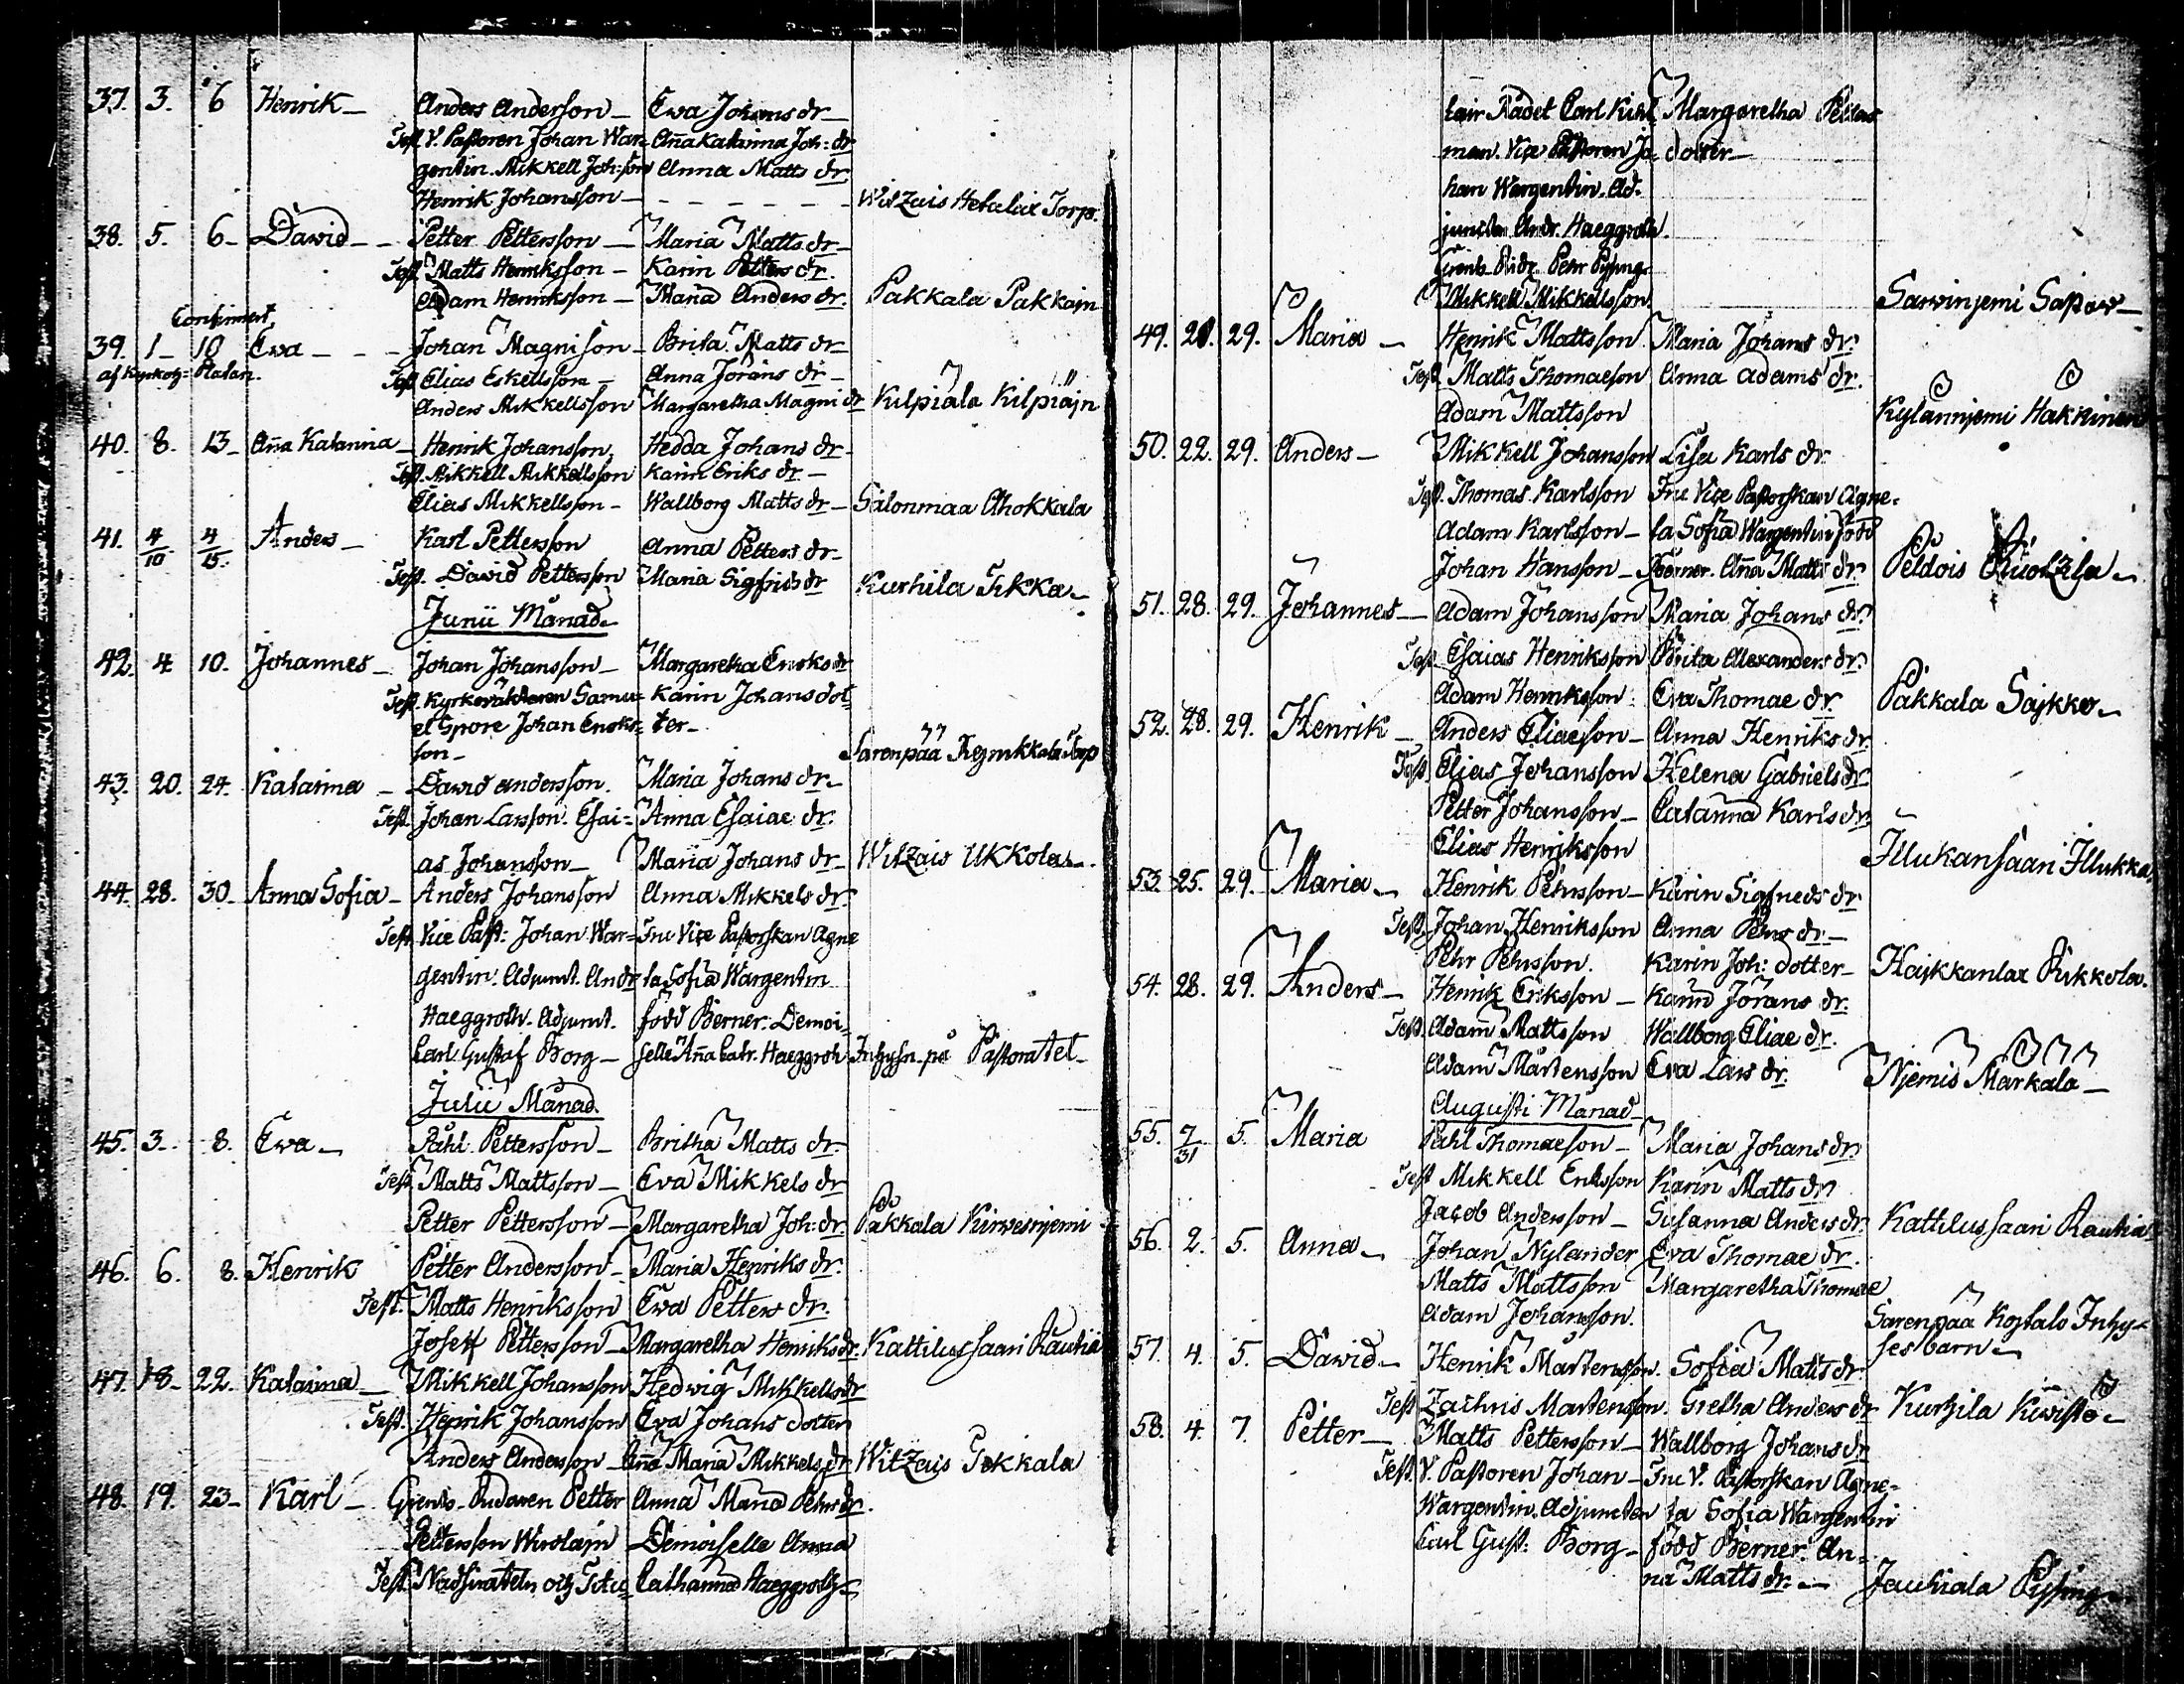 37. 3. 6 Henrik - Anders Anderson - Ewa Johans dr -
Test. V. Pastoren Johan War- Aña Katarina Joh: dr
gentin. Mikkell Joh: son Anna Matts dr
Henrik Johansson - Witzais Hetalax Torp.
38. 5. 6 - David - - Petter Pettersson - Maria Matts dr -
Test. Matts Henriksson - Karin Petters dr.
Adam Henriksson - Maria Anders dr. Pakkala Pakkain
39. 1 - 10 Ewa - - - Johan Magnison - Brita Matts dr -
Test. Elias Eskellsson - Anna Jörans dr -
Anders Mikkellsson Margaretha Magni dr Kilpiala Kilpiäjn
40. 8. 13 - Aña Katarina - Henrik Johansson Hedda Johans dr -
Test. Mikkell Mikkellsson Karin Eriks dr -
Elias Mikkellsson - Wallborg Matts dr - Salonmaa Ahokkala
41. 4/10 4/15. Anders - Karl Pettersson Anna Petters dr -
Test. David Pettersson Maria Sigfrids dr Kurhila Sikka -
Junii Månad -
42. 4 10. Johannes - Johan Johansson - Margaretha Eriks dr
Test. Kyrkoväktaren Samu- Karin Johans dot
el Spore Johan Eriks- ter -
son - Sarenpää Torp
43. 20. 24. Katarina - David Andersson. Maria Johans dr -
Test. Johan Larsson. Esai= Anna Esaiae dr.
as Johansson - Maria Johans dr - Witzais Ukkola -
44. 28. 30 - Anna Sofia - Anders Johansson Anna Mikkels dr.
Test. Vice Past: Johan War= Fru Vice Pastorskan Agne
gentin. Adjunct. Andr ta Sofia Wargentin
Haeggroth. Adjunct. född Berner. Demoi=
Carl Gustaf Borg - selle Aña Catr. Haeggroth Inhysn. på Pastoratet -
Julii Månad.
45. 3. 8. Ewa - Påhl Pettersson - Britha Matts dr.
Test. Matts Mattsson - Eva Mikkels dr
Petter Pettersson - Margaretha Joh: dr. Pakkala Kirwesnjemi
46. 6. 8. Henrik Petter Andersson - Maria Henriks dr.
Test. Matts Henriksson Ewa Petters dr.
Josef Pettersson - Margaretha Henriks dr. Kattilussaari Rautia
47. 18 - 22. Katarina - Mikkell Johansson Hedwig Mikkells dr
Test. Henrik Johansson Eva Johans dotter
Anders Andersson - Aña Maria Mikkels dr Witzais
48. 19. 23 - Karl - Grents-Ridaren Petter Anna Maria Pehrs dr.
Pettersson Wirolajn Demoiselle Anna
Test. Rådhurateln och Titu- Catharina Haeggroth -
lair Rådet Carl Kihl- Margaretha Petters
man. Vice Pastoren Jo- dotter -
han Wargentin. Ad-
juncten Andr. Haeggroth.
Grents-Ridr. Pehr Pysing.
Mikkell Mikkellsson Sarvinjemi Sapar -
49. 21. 29. Maria - Henrik Mattsson Maria Johans dr.
Test. Matts Thomaeson Anna Adams dr.
Adam Mattsson Kylännjemi Hakkinen
50. 22. 29. Anders - Mikkell Johansson Lisa Karls dr.
Test. Thomas Karlsson Fru Vice Pastorskan Agne-
Adam Karlsson - ta Sofia Wargentin född
Johan Hansson - Berner. Aña Matts dr. Peldois
51. 28. 29. Johannes - Adam Johansson Maria Johans dr.
Test. Esaias Henriksson Brita Alexanders dr.
Adam Henriksson Eva Thomae dr. Pakkala Sajkko -
52. 28. 29. Henrik - Anders Eliaeson - Anna Henriks dr.
Test. Elias Johansson Helena Gabriels dr
Petter Johansson - Catarina Karls dr
Elias Henriksson Illukansaari Illukka.
53. 25. 29. Maria - Henrik Pehrsson - Karin Sigfrieds dr
Test. Johan Henriksson Anna Pehrs dr. -
Pehr Pehrsson. Karin Joh: dotter - Hajkkanlax Rikkola.
54. 28. 29. Anders - Henrik Eriksson - Karin Jörans dr.
Test. Adam Mattsson Wallborg Eliae dr.
Adam Mårtensson Eva Lars dr. Njemis Markala -
Augusti Månad -
55. 7/31 5. Maria Påhl Thomaeson - Maria Johans dr.
Test Mikkell Eriksson Karin Matts dr
Jacob Andersson - Susanna Anders dr. Kattilussaari Rautia
56. 2. 5. Anna - Johan Nylander Eva Thomae dr.
Matts Mattsson Margaretha Thomae
Adam Johansson. Sarenpää Kojtalo Inhy-
ses barn -
57. 4. 5. David - Henrik Mårtensson. Sofia Matts dr.
Test Zachris Mårtensson. Gretha Anders dr Kurhila
58. 4. 7. Petter - Matts Pettersson - Wallborg Johans dr
Test. V. Pastoren Johan - Fru V. Pastorskan Agne-
Wargentin. Adjuncten ta Sofia Wargentin
Carl Gust: Borg - född Berner. An-
na Matts dr. - Jauhiala Pysing -